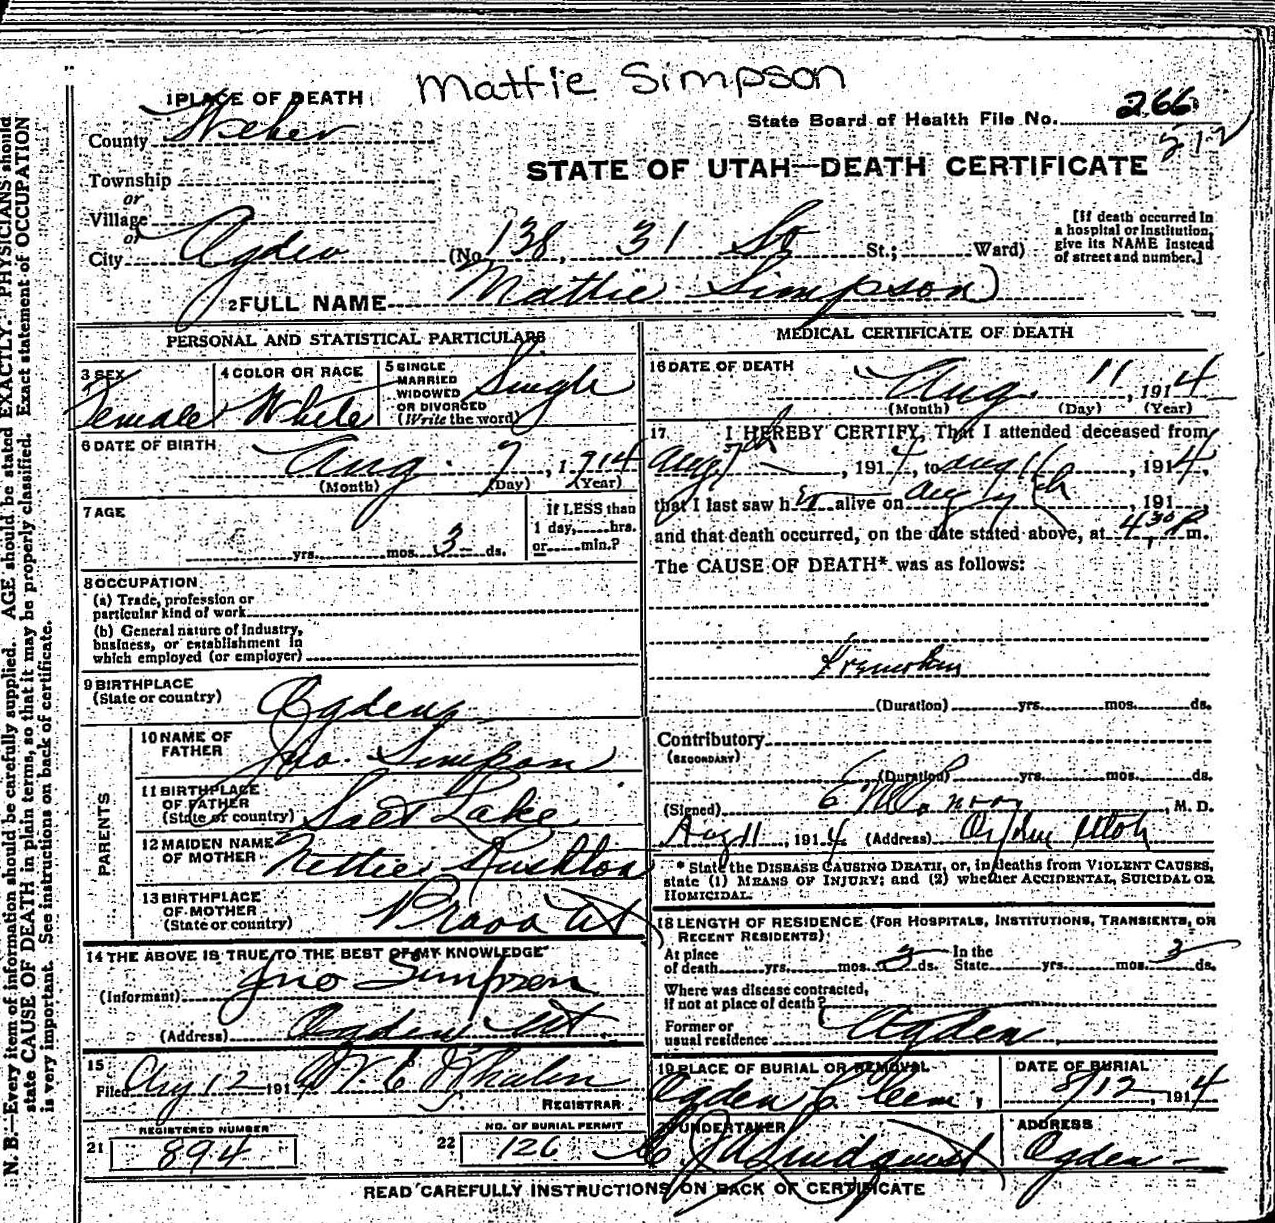 Mattie Simpson
1 PLACE OF DEATH
State Board of Health File No. 266
County Weber
212
STATE OF UTAH—DEATH CERTIFICATE
Township
or
Village
or
City Ogden (No. 138, 31 So St.; Ward)
[If death occurred in a hospital or institution, give its NAME instead of street and number.]
2 FULL NAME Mattie Simpson
PERSONAL AND STATISTICAL PARTICULARS
3 SEX Female
4 COLOR OR RACE White
5 SINGLE MARRIED WIDOWED OR DIVORCED (Write the word) Single
6 DATE OF BIRTH Aug. 7, 1914
(Month) (Day) (Year)
7 AGE
yrs. mos. 3 ds.
If LESS than 1 day, hrs. or min.?
8 OCCUPATION
(a) Trade, profession or particular kind of work
(b) General nature of industry, business, or establishment in which employed (or employer)
9 BIRTHPLACE (State or country) Ogden
PARENTS
10 NAME OF FATHER Jno. Simpson
11 BIRTHPLACE OF FATHER (State or country) Salt Lake
12 MAIDEN NAME OF MOTHER Nettie Rushton
13 BIRTHPLACE OF MOTHER (State or country) Provo Ut
14 THE ABOVE IS TRUE TO THE BEST OF MY KNOWLEDGE
(Informant) Jno Simpson
(Address) Ogden Ut
15
Filed Aug 12 1914 Whalen
REGISTRAR
21 REGISTERED NUMBER 894
22 NO. OF BURIAL PERMIT 126
MEDICAL CERTIFICATE OF DEATH
16 DATE OF DEATH
Aug. 11, 1914
(Month) (Day) (Year)
17 I HEREBY CERTIFY, That I attended deceased from
Aug 7th, 1914, to Aug 11, 1914,
that I last saw her alive on Aug, 191
and that death occurred, on the date stated above, at 4,30 P m.
The CAUSE OF DEATH* was as follows:
(Duration) yrs. mos. ds.
Contributory
(SECONDARY)
(Duration) yrs. mos. ds.
(Signed) , M. D.
Aug 11, 1914 (Address) Ogden Utah
* State the DISEASE CAUSING DEATH, or, in deaths from VIOLENT CAUSES,
state (1) MEANS OF INJURY; and (2) whether ACCIDENTAL, SUICIDAL OR
HOMICIDAL.
18 LENGTH OF RESIDENCE (FOR HOSPITALS, INSTITUTIONS, TRANSIENTS, OR
RECENT RESIDENTS)
At place of death yrs. mos. 3 ds. In the State yrs. mos. 3 ds.
Where was disease contracted,
if not at place of death?
Former or usual residence Ogden
19 PLACE OF BURIAL OR REMOVAL Ogden C Cem,
DATE OF BURIAL 8/12, 1914
20 UNDERTAKER Lindquist
ADDRESS Ogden
READ CAREFULLY INSTRUCTIONS ON BACK OF CERTIFICATE
N. B.—Every item of information should be carefully supplied. AGE should be stated EXACTLY. PHYSICIANS should
state CAUSE OF DEATH in plain terms, so that it may be properly classified. Exact statement of OCCUPATION
is very important. See instructions on back of certificate.